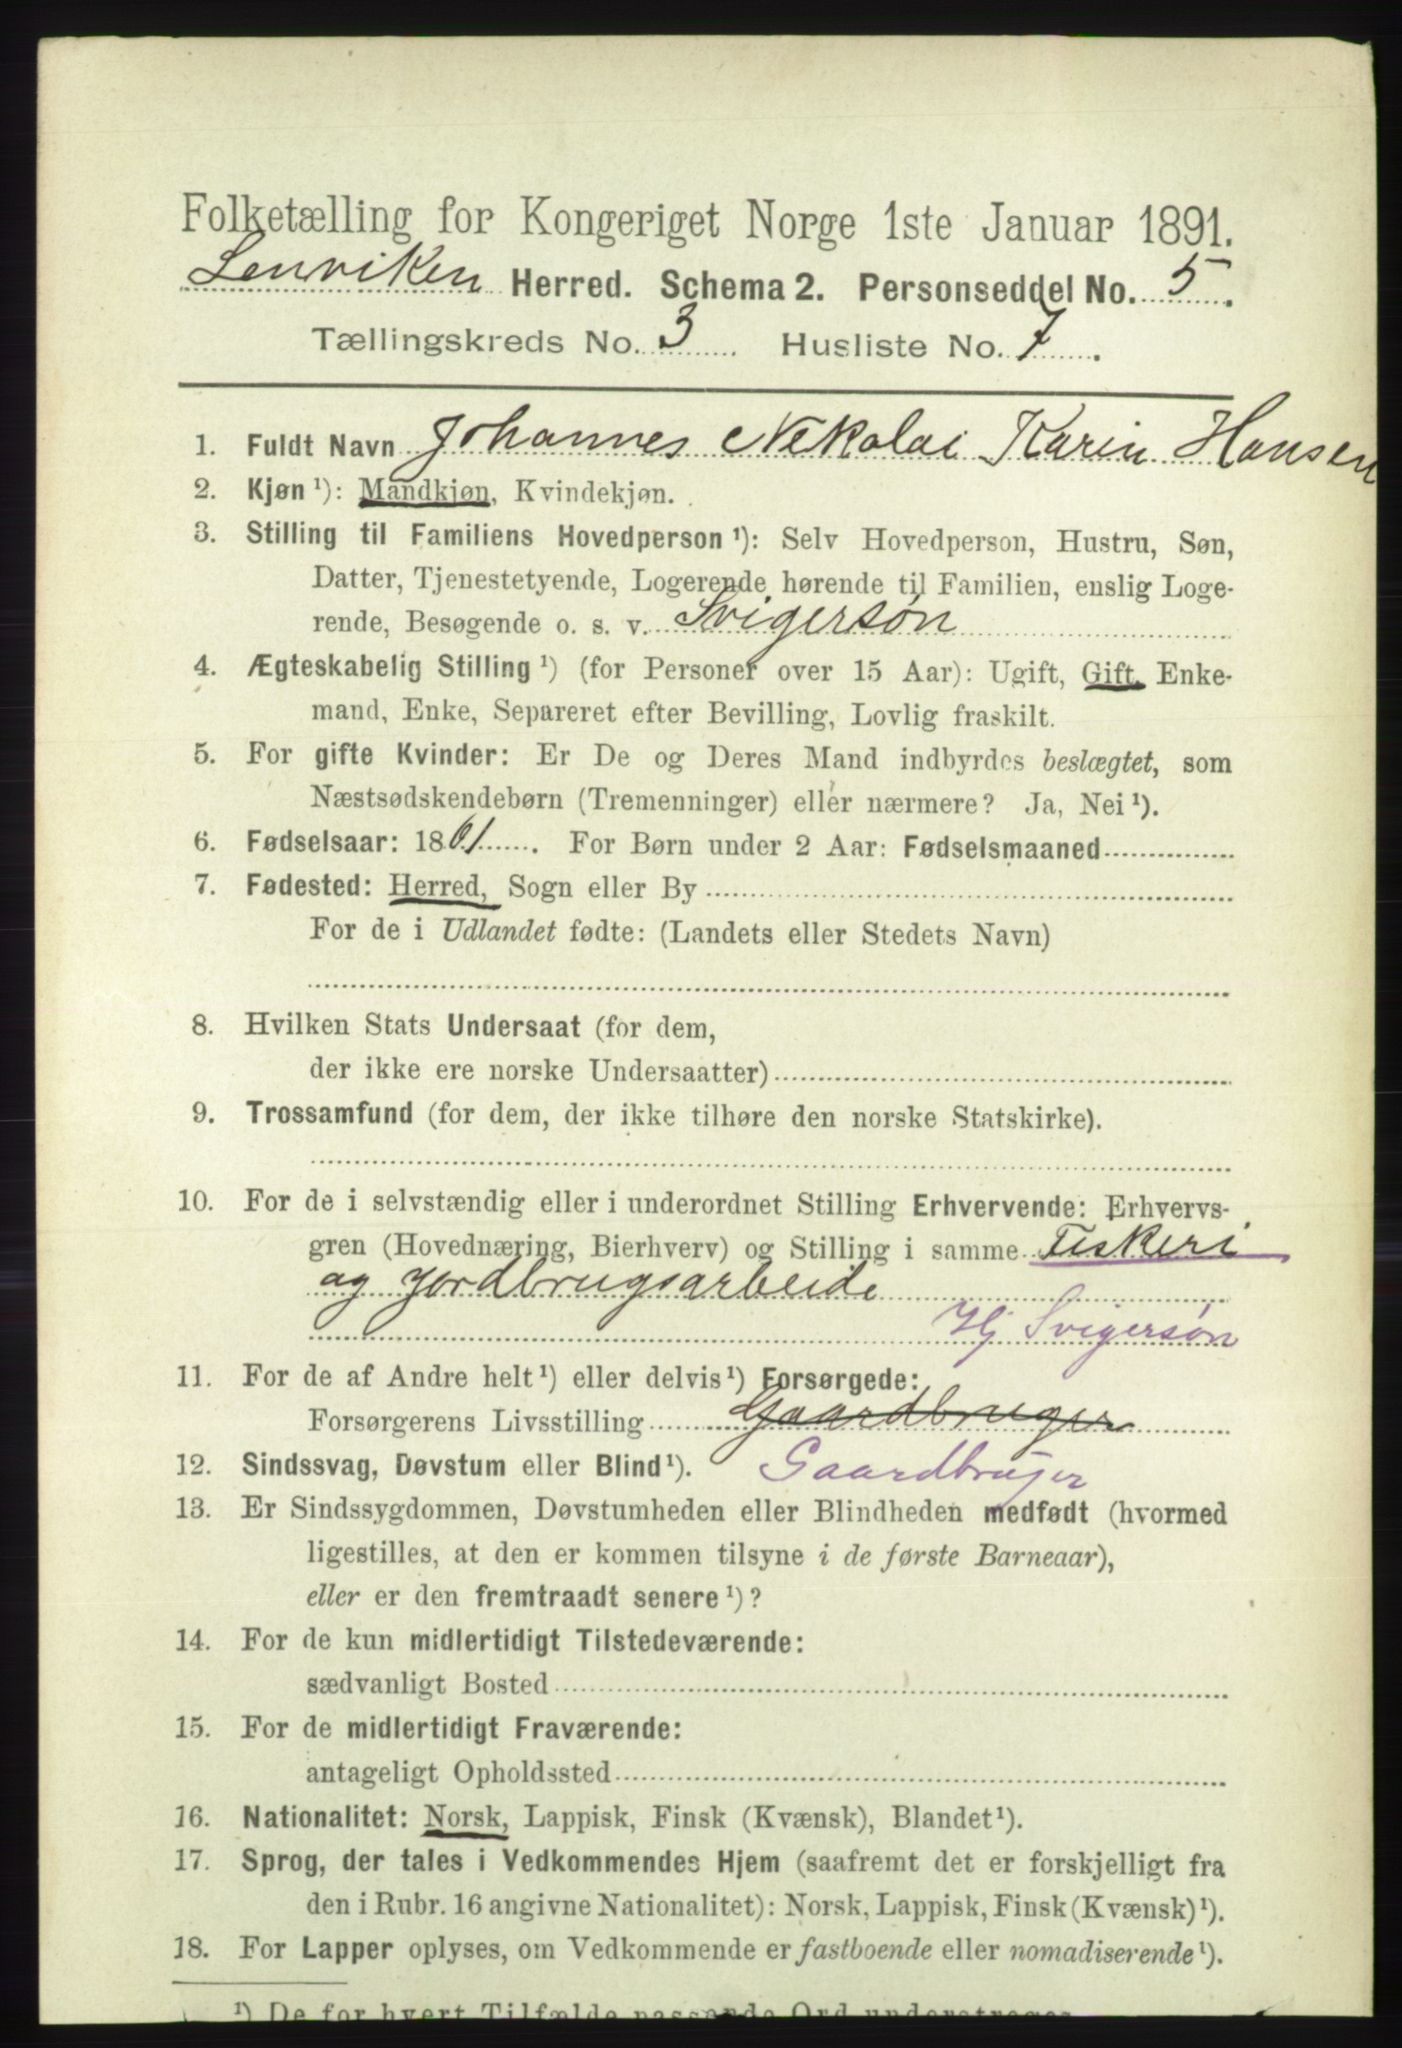 Folketælling for Kongeriget Norge 1ste Januar 1891.
Lenviken Herred. Schema 2. Personseddel No. 5.
Tællingskreds No. 3 Husliste No. 7.
1. Fuldt Navn Johannes Nekolai Karin Hansen
2. Kjøn ¹): Mandkjøn, Kvindekjøn.
3. Stilling til Familiens Hovedperson ¹): Selv Hovedperson, Hustru, Søn,
Datter, Tjenestetyende, Logerende hørende til Familien, enslig Loge-
rende, Besøgende o. s. v. Svigersøn
4. Ægteskabelig Stilling ¹) (for Personer over 15 Aar): Ugift, Gift, Enke-
mand, Enke, Separeret efter Bevilling, Lovlig fraskilt.
5. For gifte Kvinder: Er De og Deres Mand indbyrdes beslægtet, som
Næstsødskendebørn (Tremenninger) eller nærmere? Ja, Nei ¹).
6. Fødselsaar: 1861. For Børn under 2 Aar: Fødselsmaaned
7. Fødested: Herred, Sogn eller By
For de i Udlandet fødte: (Landets eller Stedets Navn)
8. Hvilken Stats Undersaat (for dem,
der ikke ere norske Undersaatter)
9. Trossamfund (for dem, der ikke tilhøre den norske Statskirke).
10. For de i selvstændig eller i underordnet Stilling Erhvervende: Erhvervs-
gren (Hovednæring, Bierhverv) og Stilling i samme Fiskeri
og jordbrugsarbeide
Hj Svigersøn
11. For de af Andre helt ¹) eller delvis ¹) Forsørgede:
Forsørgerens Livsstilling Gaardbruger
12. Sindssvag, Døvstum eller Blind ¹). Gaardbruger
13. Er Sindssygdommen, Døvstumheden eller Blindheden medfødt (hvormed
ligestilles, at den er kommen tilsyne i de første Barneaar),
eller er den fremtraadt senere ¹)?
14. For de kun midlertidigt Tilstedeværende:
sædvanligt Bosted
15. For de midlertidigt Fraværende:
antageligt Opholdssted
16. Nationalitet: Norsk, Lappisk, Finsk (Kvænsk), Blandet ¹).
17. Sprog, der tales i Vedkommendes Hjem (saafremt det er forskjelligt fra
den i Rubr. 16 angivne Nationalitet): Norsk, Lappisk, Finsk (Kvænsk) ¹).
18. For Lapper oplyses, om Vedkommende er fastboende eller nomadiserende ¹).
¹) De for hvert Tilfælde passende Ord understreges.